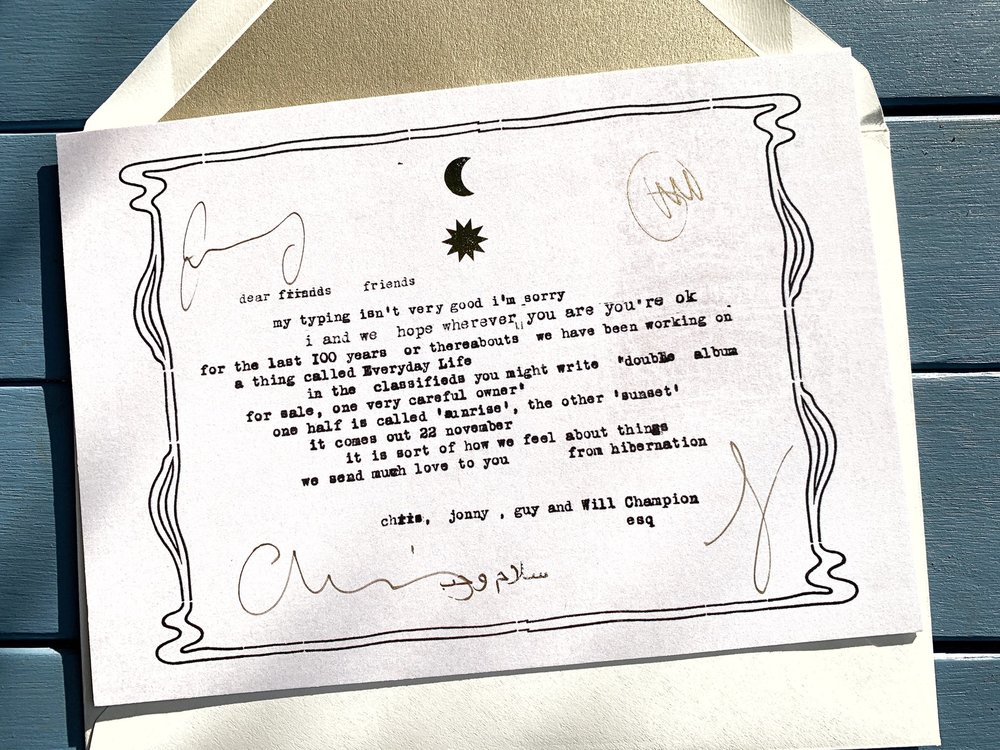 dear friends friends
my typing isn't very good i'm sorry
i and we hope wherever you are you're ok
for the last I00 years or thereabouts we have been working on
a thing called Everyday Life
in the classifieds you might write 'double album
for sale, one very careful owner'
one half is called 'sunrise', the other 'sunset'
it comes out 22 november
it is sort of how we feel about things
we send much love to you from hibernation
chris, jonny , guy and Will Champion
esq
سلام وحب